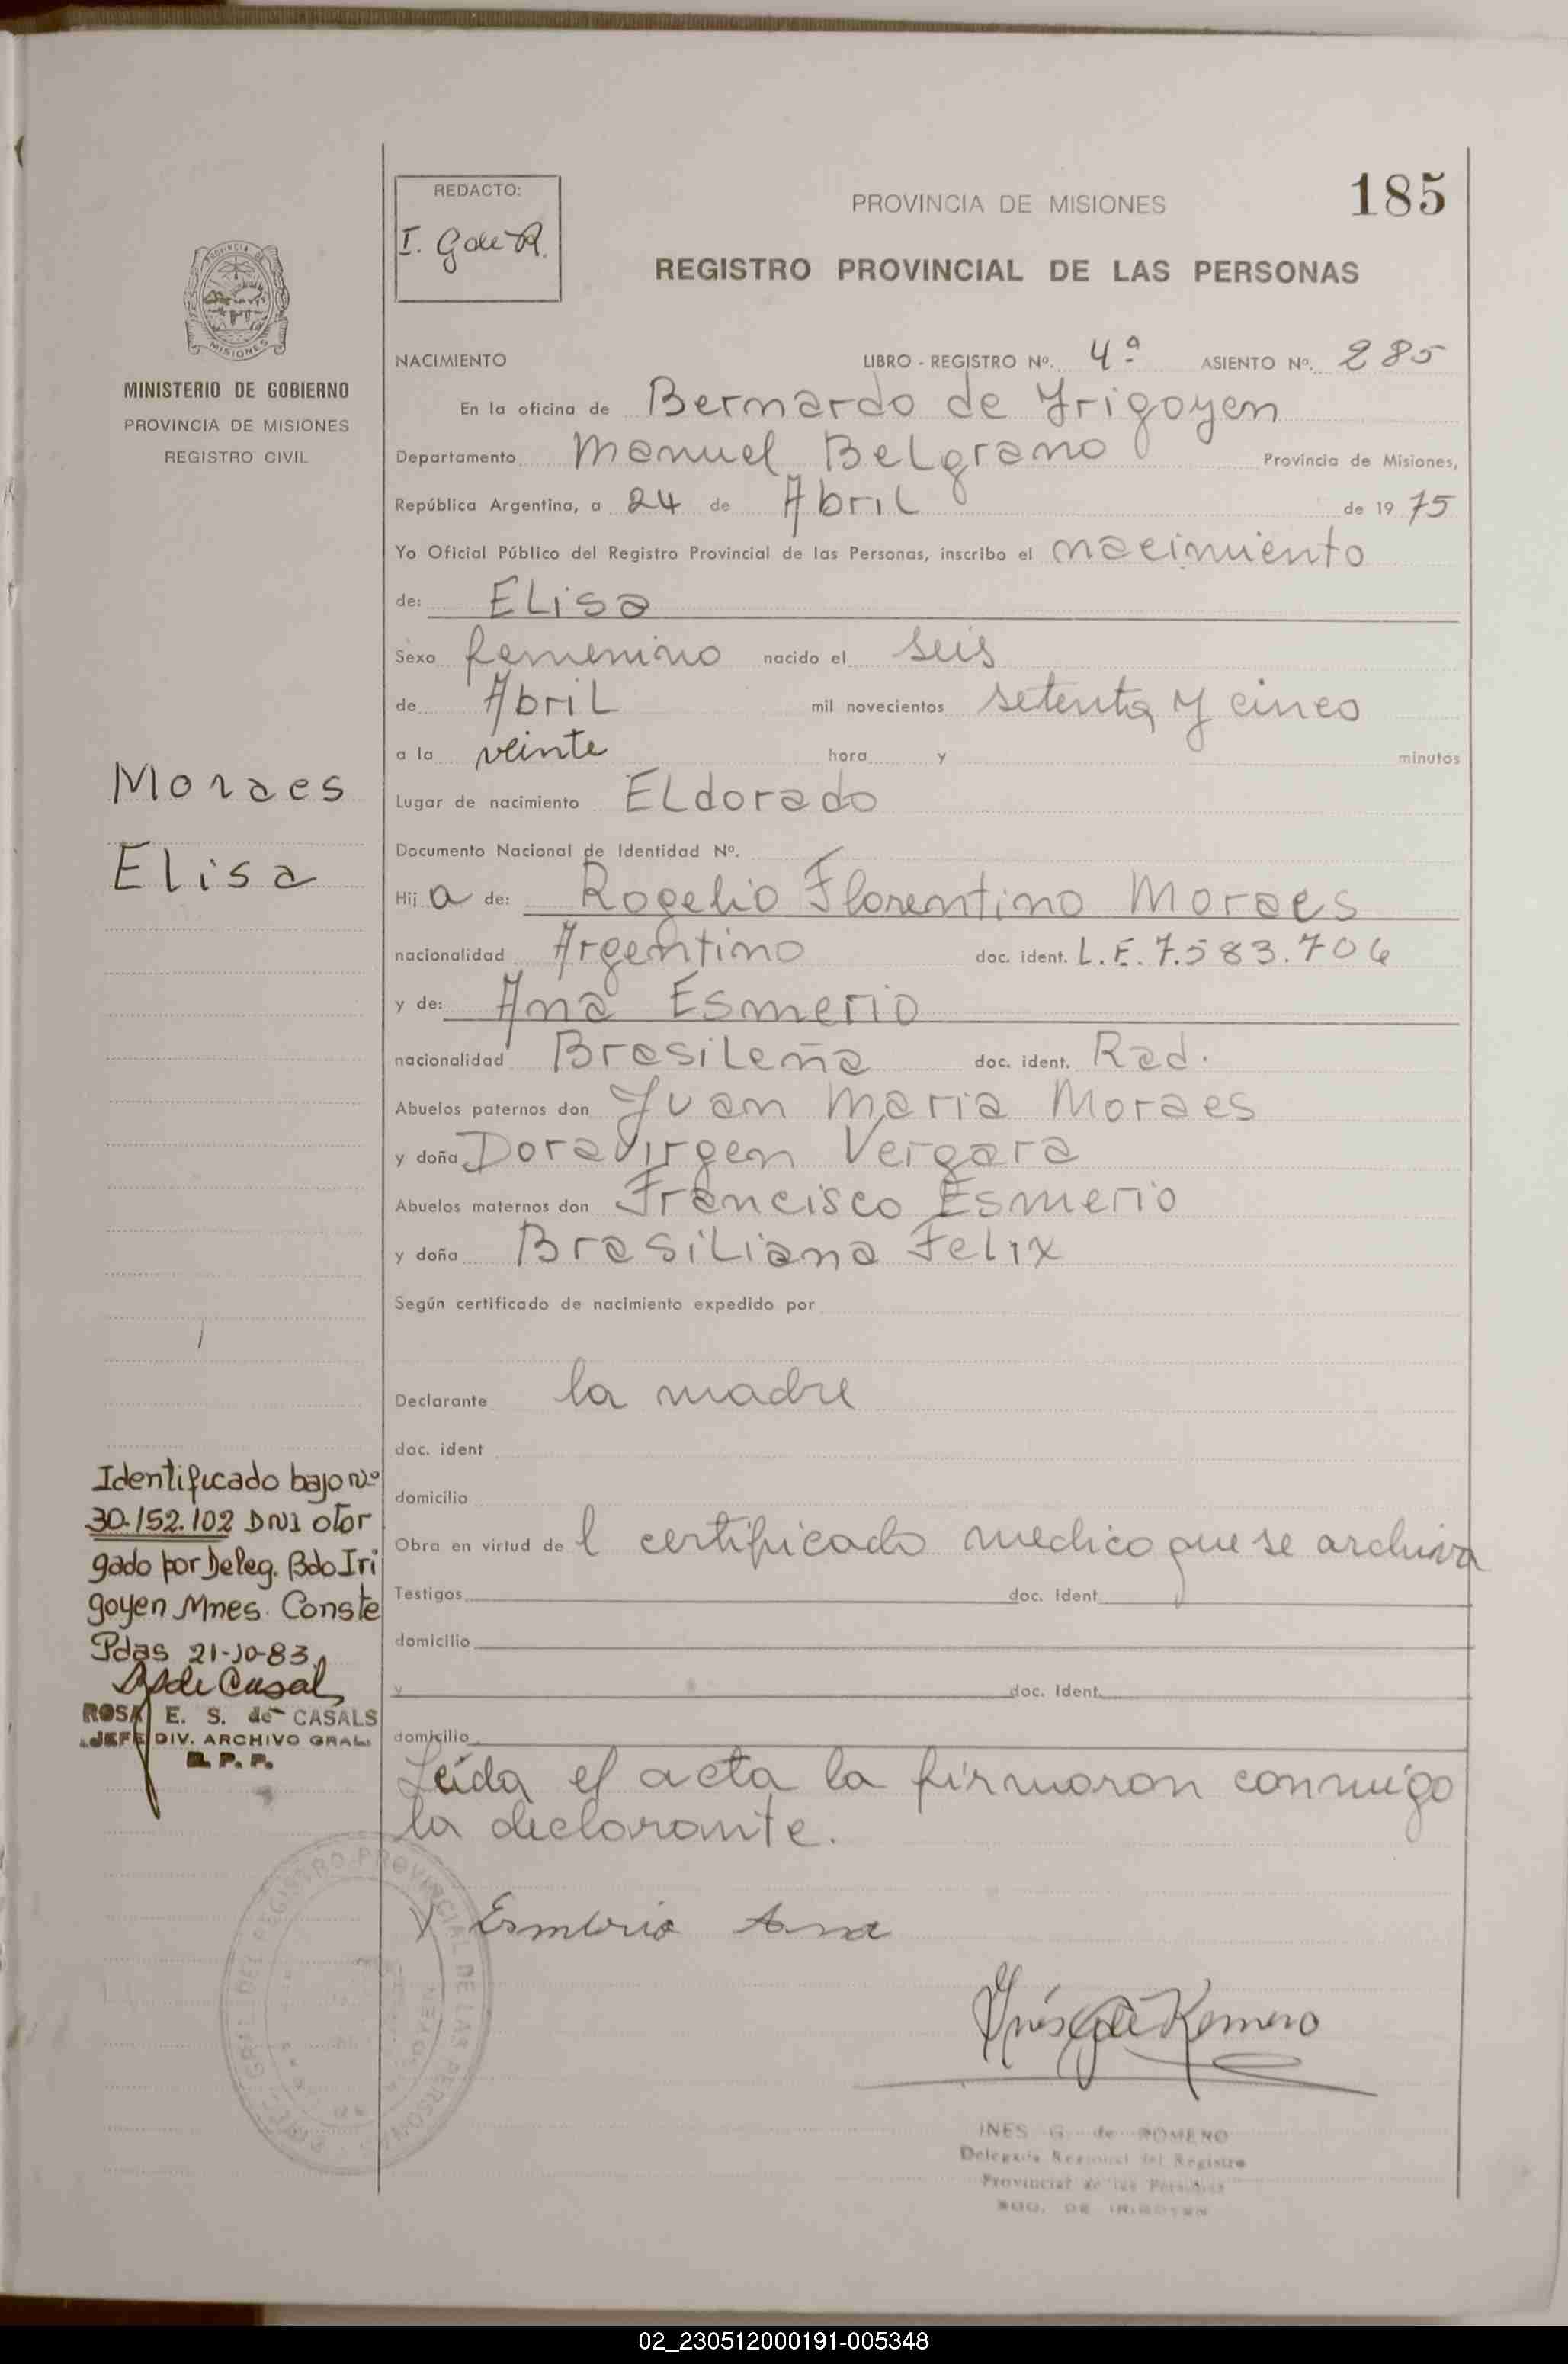 185
REDACTO:
I. G de R.
PROVINCIA DE MISIONES
REGISTRO PROVINCIAL DE LAS PERSONAS
PROVINCIA DE MISIONES
MINISTERIO DE GOBIERNO
PROVINCIA DE MISIONES
REGISTRO CIVIL
NACIMIENTO LIBRO - REGISTRO Nº. 4ª ASIENTO Nº. 285
En la oficina de Bernardo de Yrigoyen
Departamento Manuel Belgrano Provincia de Misiones,
República Argentina, a 24 de Abril de 1975
Yo Oficial Público del Registro Provincial de las Personas, inscribo el nacimiento
de: ELisa
Sexo femenino nacido el seis
de AbriL mil novecientos setenta y cinco
a la veinte hora y minutos
Lugar de nacimiento ELdorado
Documento Nacional de Identidad Nº.
Hij a de: Rogelio Florentino Moraes
nacionalidad Argentino doc. ident. L.E. 7.583.706
y de: Ana Esmerio
nacionalidad BrasiLeña doc. ident. Rad.
Abuelos paternos don Juan Maria Moraes
y doña Doravirgen Vergara
Abuelos maternos don Francisco Esmerio
y doña BrasiLiana Felix
Según certificado de nacimiento expedido por
Declarante la madre
doc. ident
domicilio
Obra en virtud de l certificado medico que se archiva
Testigos doc. ident
domicilio
y doc. ident.
domicilio
Leída el acta la firmaron conmigo
la declarante.
Moraes
Elisa
Identificado bajo nº
30.152.102 DNI otor
gado por Deleg. Bdo Iri
goyen Mnes. Conste
Pdas 21-10-83
ROSA E. S. de CASALS
JEFE DIV. ARCHIVO GRAL.
R. P. P.
Esmerio Ana
Inés G de Romero
INES G. de ROMERO
Delegada Regional del Registro
Provincial de las Personas
BDO. DE IRIGOYEN
02_230512000191-005348